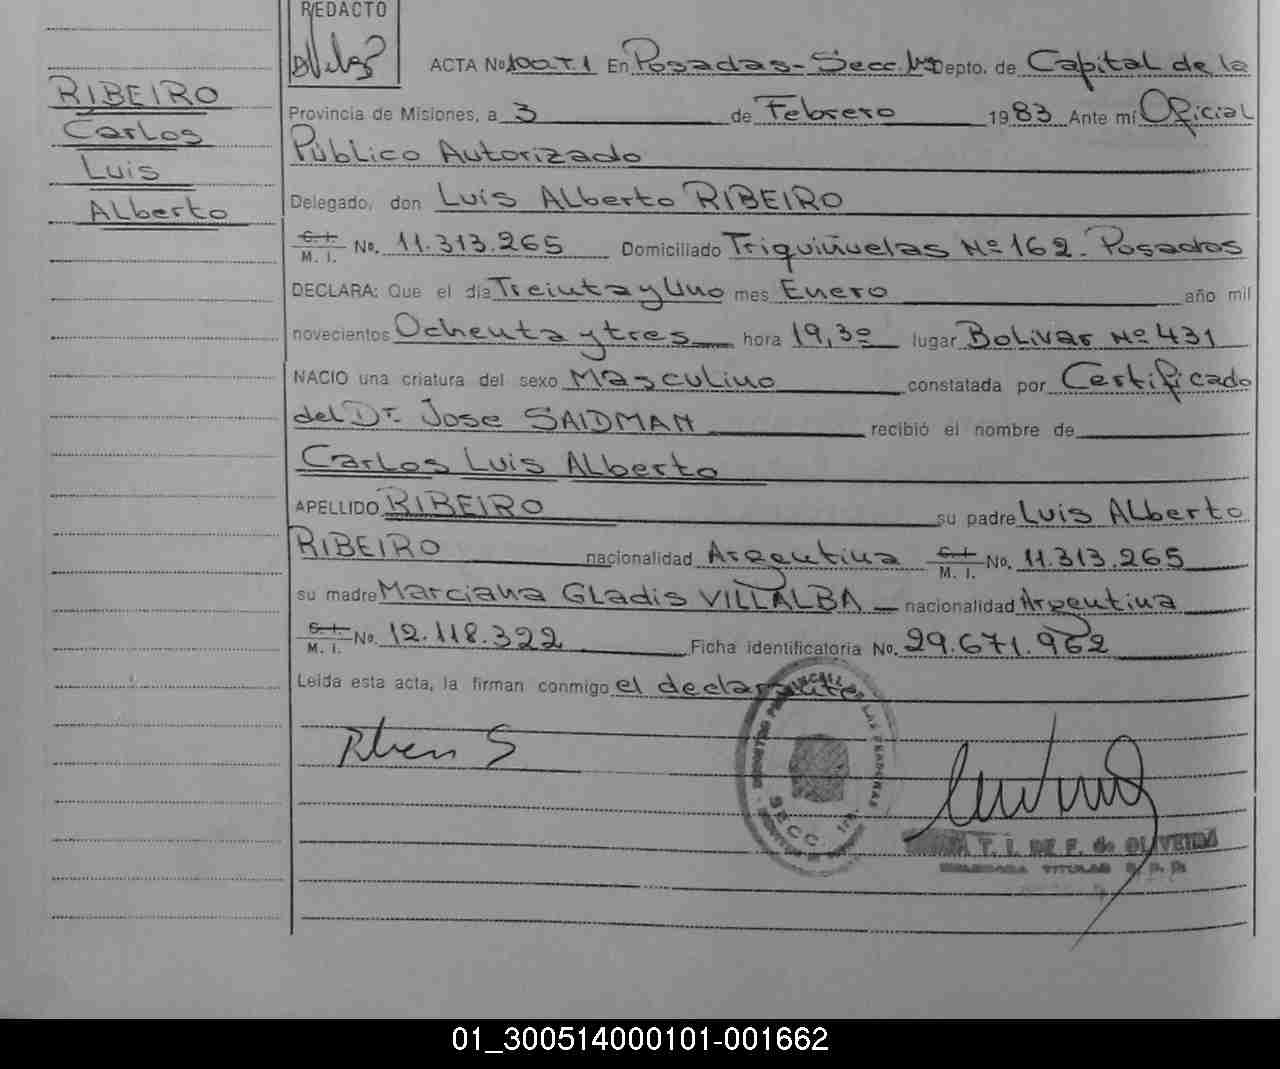 REDACTO
ACTA No 100 T1 En Posadas - Secc. 1ra Depto. de Capital de la
RIBEIRO
Carlos
Luis
Alberto
Provincia de Misiones, a 3 de Febrero 1983 Ante mí Oficial
Público Autorizado
Delegado, don Luis Alberto RIBEIRO
C. I.
M. I. No. 11.313.265 Domiciliado Triquiñuelas Nº 162. Posadas
DECLARA: Que el día Treinta y Uno mes Enero año mil
novecientos Ochenta y tres hora 19,30 lugar Bolivar Nº 431
NACIO una criatura del sexo Masculino constatada por Certificado
del Dr. Jose SAIDMAN recibió el nombre de
Carlos Luis Alberto
APELLIDO RIBEIRO su padre Luis Alberto
RIBEIRO nacionalidad Argentina C. I. M. I. No. 11.313.265
su madre Marciana Gladis VILLALBA nacionalidad Argentina
C. I. M. I. No. 12.118.322 Ficha identificatoria No. 29.671.962
Leída esta acta, la firman conmigo el declarante
SECC. 1ra
T. I. DE F. de OLIVEIRA
DELEGADA TITULAR R. P. P.
01_300514000101-001662